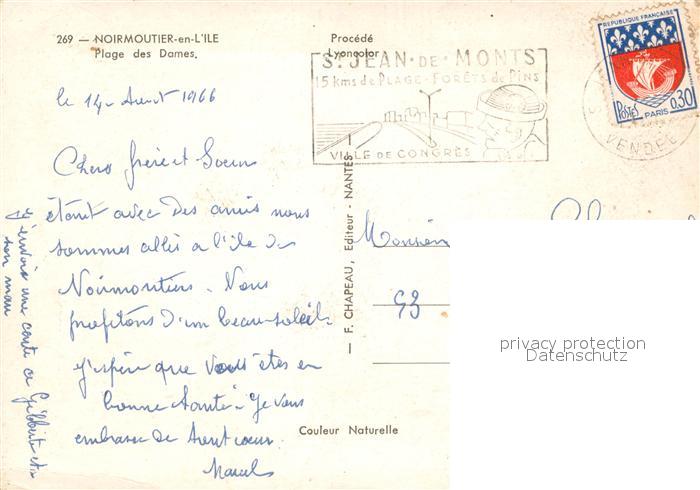 269 — NOIRMOUTIER-en-L'ILE
Plage des Dames.
Procédé
Lyoncolor
St JEAN-DE-MONTS
15 kms de PLAGE-FORÊTS de PINS
VILLE DE CONGRÈS
VENDEE
REPUBLIQUE FRANÇAISE
POSTES
PARIS
0,30
le 14 Aout 1966
Chers frère et Soeur
étant avec des amis nous
sommes allés a l'ile de
Noirmoutier. Nous
profitons d'un beau soleil.
j'espère que vous êtes en
bonne santé. Je vous
embrasse de tout coeur.
Marcel
J'envoie une carte a Gilberte et
son mari
— F. CHAPEAU, Editeur - NANTES —
Monsieur
53
Couleur Naturelle
privacy protection
Datenschutz